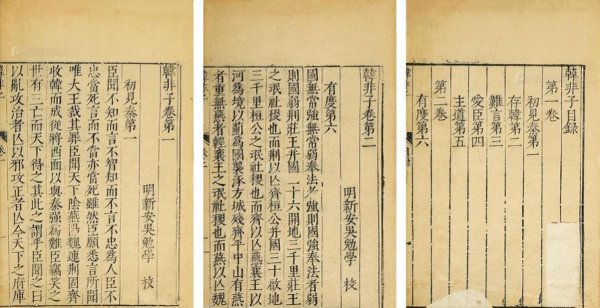 韓非子目錄
第一卷
初見秦第一
存韓第二
難言第三
愛臣第四
主道第五
第二卷
有度第六
韓非子卷第二
明新安吳勉學 校
有度第六
國無常強無常弱奉法者強則國強奉法者弱
則國弱荊莊王并國二十六開地三千里莊王
之氓社稷也而荊以亡齊桓公并國三十啟地
三千里桓公之氓社稷也而齊以亡燕襄王以
河為境以薊為國襲涿方城殘齊平中山有燕
者重無燕者輕襄王之氓社稷也而燕以亡魏
韓非子 卷二
韓非子卷第一
明新安吳勉學 校
初見秦第一
臣聞不知而言不智知而不言不忠為人臣不
忠當死言而不當亦當死雖然臣願悉言所聞
唯大王裁其罪臣聞天下陰燕陽魏連荊固齊
收韓而成從將西面以與秦強為難臣竊笑之
世有三亡而天下得之其此之謂乎臣聞之曰
以亂攻治者亡以邪攻正者亡今天下之府庫
韓非子 卷一